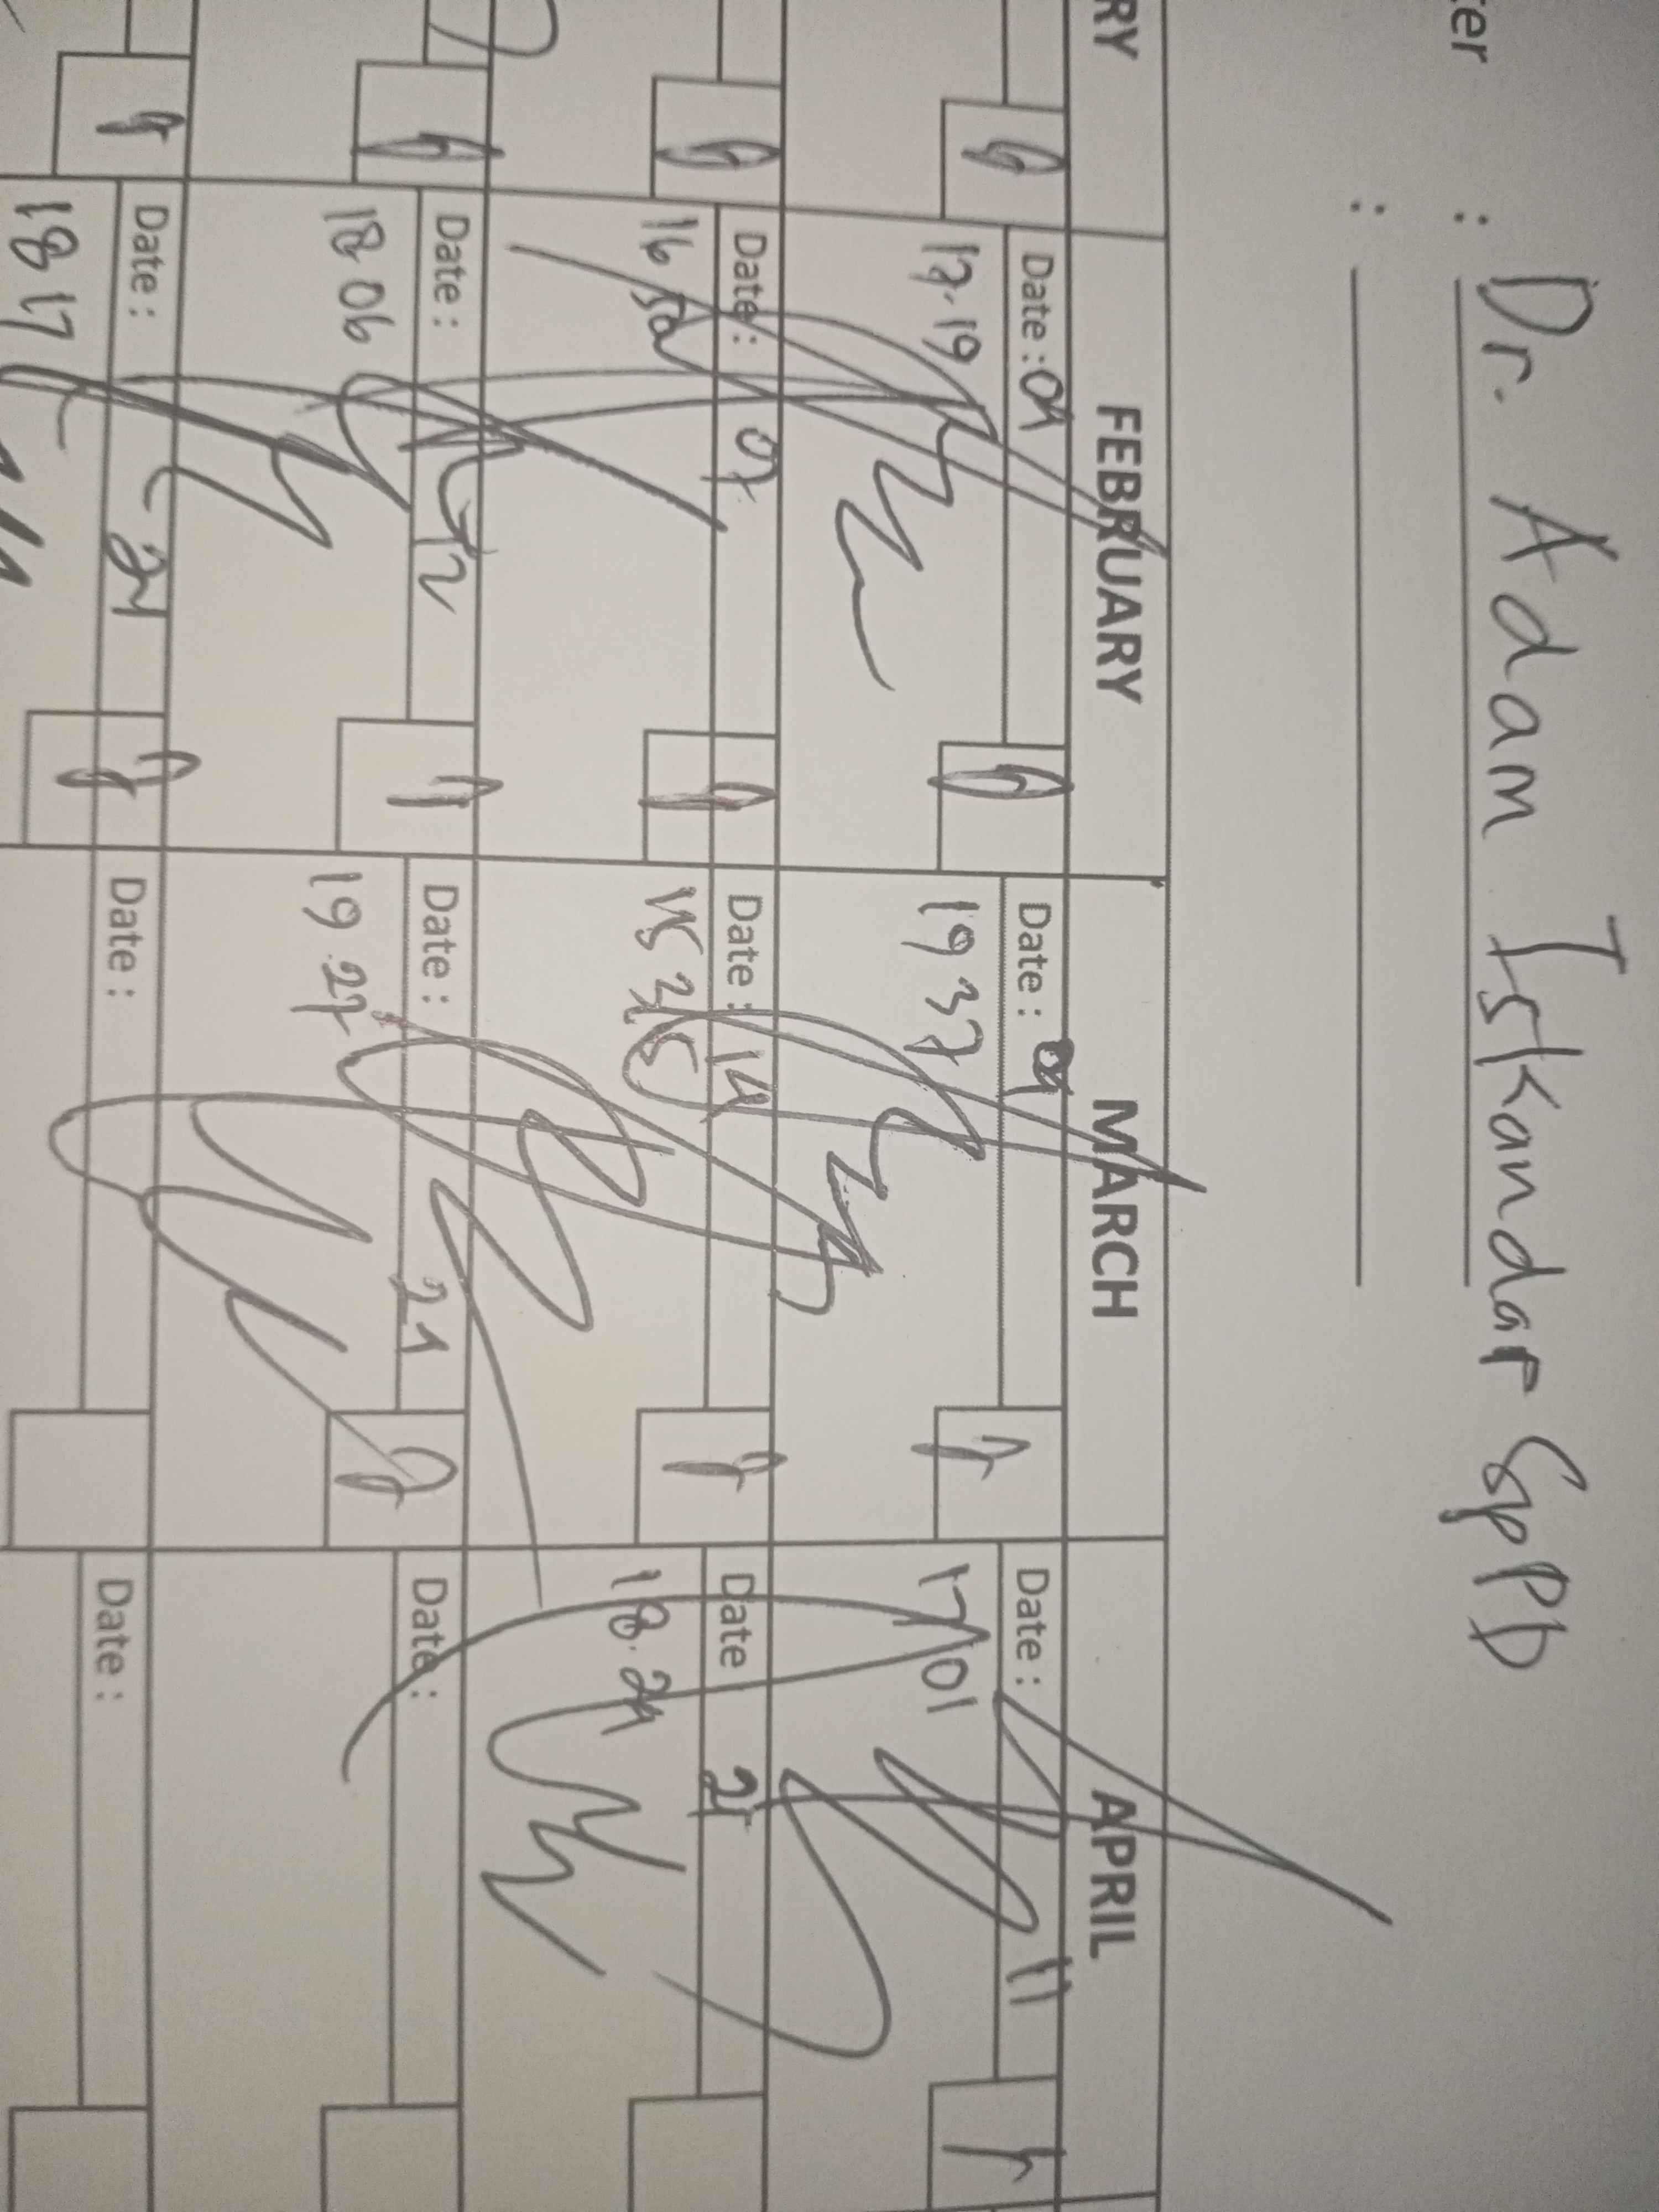 ter : Dr. Adam Iskandar SpPD
:
RY FEBRUARY MARCH APRIL
Date : 04 Date : 09 Date : 11
17.19 19 37 17 01
Date : 07 Date : 14 Date 25
16 50 18.29
Date : 12 Date : 21 Date :
18 06 19 27
Date : 24 Date : Date :
18 17